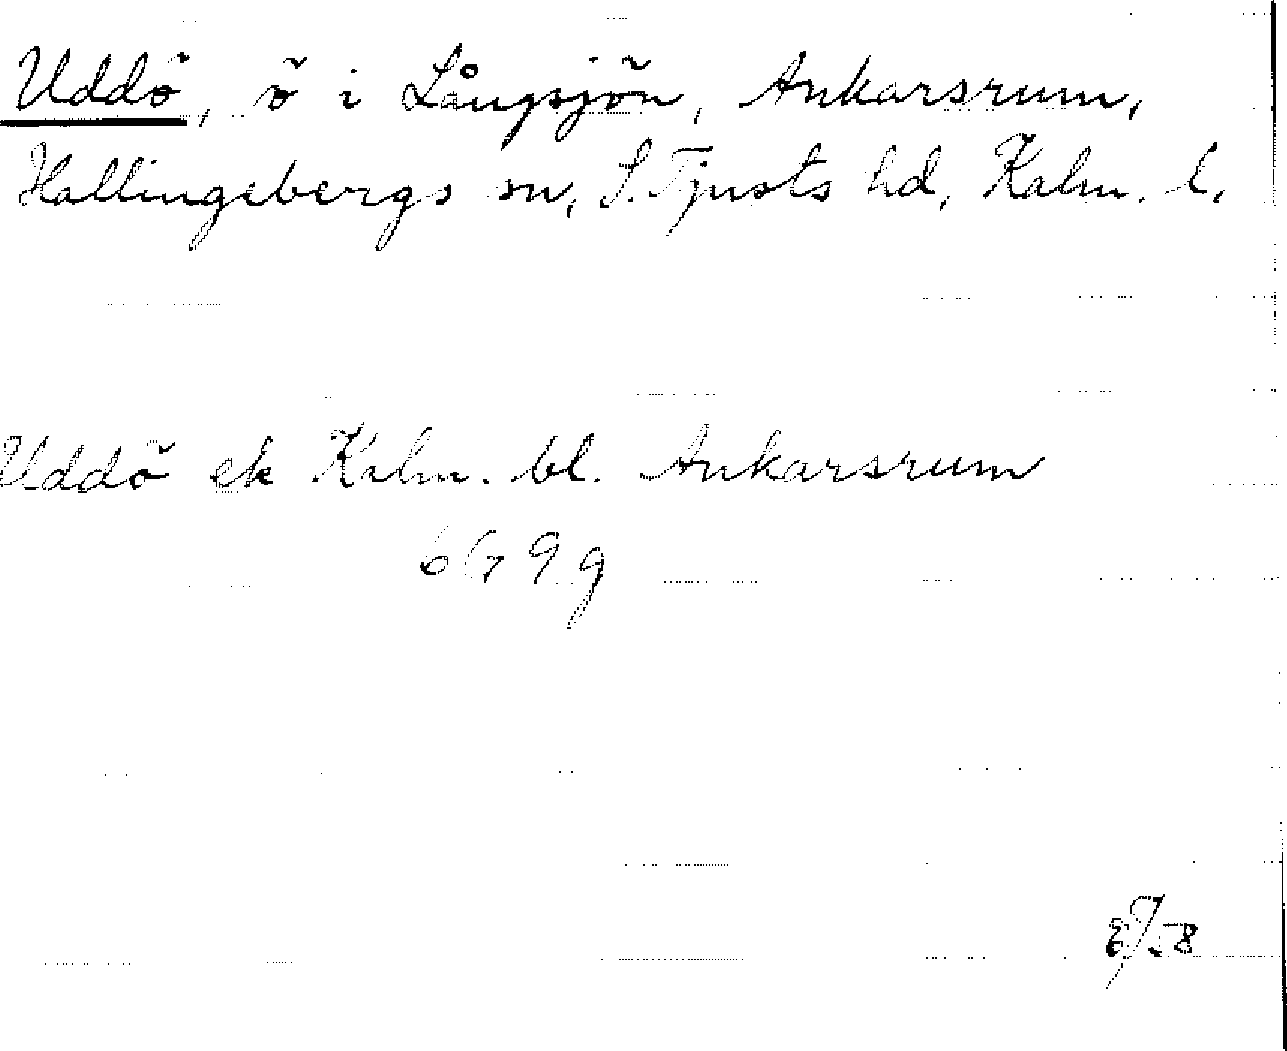 Uddö, ö i Långsjön, Ankarsrum,
Hallingebergs sn, S. Tjusts hd, Kalm. l.
Uddö ek Kalm. bl. Ankarsrum
6G 9g